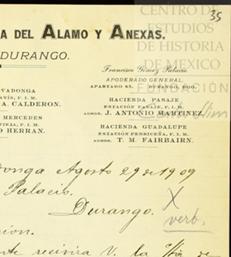 CENTRO DE
ESTUDIOS
DE HISTORIA
DE MEXICO
FUNDACIÓN
35
A DEL ALAMO Y ANEXAS.
DURANGO.
Francisco Gómez Palacio
APODERADO GENERAL,
APARTADO 85. DURANGO, DGO.
VADONGA
A. CALDERON.
HACIENDA PASAJE
ESTACION PASAJE, F. I. M.
ADMOR. J. ANTONIO MARTINEZ.
MERCEDES
F. I. M.
O HERRAN.
HACIENDA GUADALUPE
ESTACION PEDRICEÑA, F. I. M.
ADMOR. T. M. FAIRBAIRN.
donga Agosto 29 de 1909
Palacio
Durango.
X
verb.
cion.
nte recivira V. la de